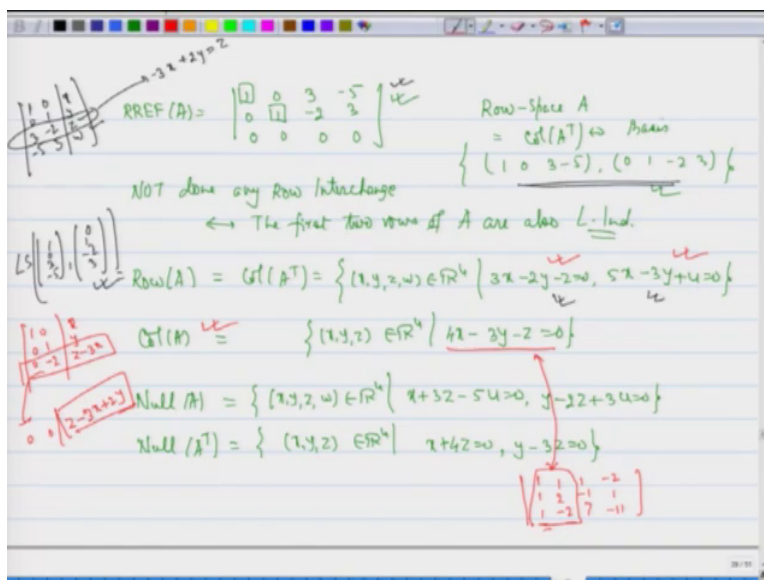 -3x+2y=z
1 0 | x
0 1 | y
3 -2 | z
-5 3 | w
RREF(A) = [ 1 0 3 -5
0 1 -2 3
0 0 0 0 ]
Row-Space A
= Col(A^T) ↔ Basis
{ (1 0 3 -5), (0 1 -2 3) }
NOT done any Row Interchange
↔ The first two rows of A are also L.Ind.
LS( (1 0 3 -5), (0 1 -2 3) )
Row(A) = Col(A^T) = { (x,y,z,w) ∈ R^4 | 3x-2y-z=0, 5x-3y+u=0 }
1 0 | x
0 1 | y
0 -2 | z-3x
0 0 | z-3x+2y
Col(A) = { (x,y,z) ∈ R^4 | 4x-3y-z=0 }
Null(A) = { (x,y,z,w) ∈ R^4 | x+3z-5u=0, y-2z+3u=0 }
Null(A^T) = { (x,y,z) ∈ R^4 | x+4z=0, y-3z=0 }
[ 1 1 1 -2
1 2 -1 1
1 -2 7 -11 ]